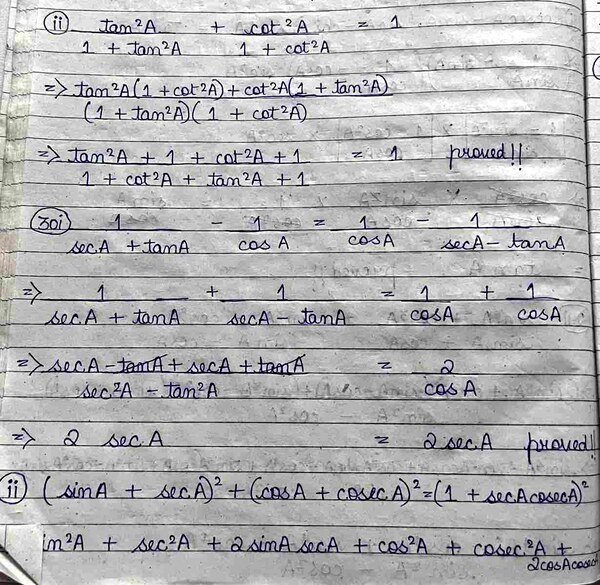 ii tan²A / 1 + tan²A + cot²A / 1 + cot²A = 1
=> tan²A(1 + cot²A) + cot²A(1 + tan²A) / (1 + tan²A)(1 + cot²A)
=> tan²A + 1 + cot²A + 1 / 1 + cot²A + tan²A + 1 = 1 proved!!
30i 1 / secA + tanA - 1 / cosA = 1 / cosA - 1 / secA - tanA
=> 1 / secA + tanA + 1 / secA - tanA = 1 / cosA + 1 / cosA
=> secA - tanA + secA + tanA / sec²A - tan²A = 2 / cosA
=> 2 secA = 2 secA proved!!
ii (sinA + secA)² + (cosA + cosecA)² = (1 + secAcosecA)²
in²A + sec²A + 2sinAsecA + cos²A + cosec²A +
2cosAcosec